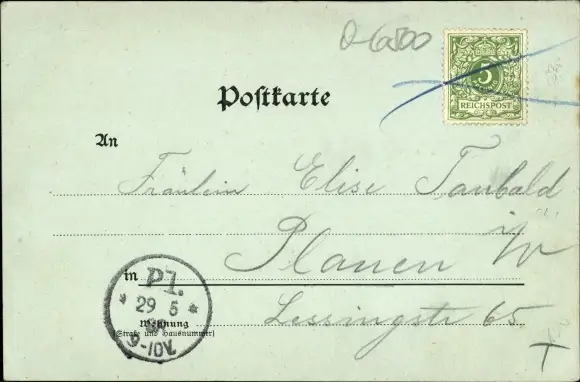 O-6500
5
REICHSPOST
Postkarte
An
Fräulein Elise Taubald
Plauen i/V
in
Pl.
* 29 5 *
9-10V.
Wohnung
(Straße und Hausnummer)
Lessingstr 65.
T